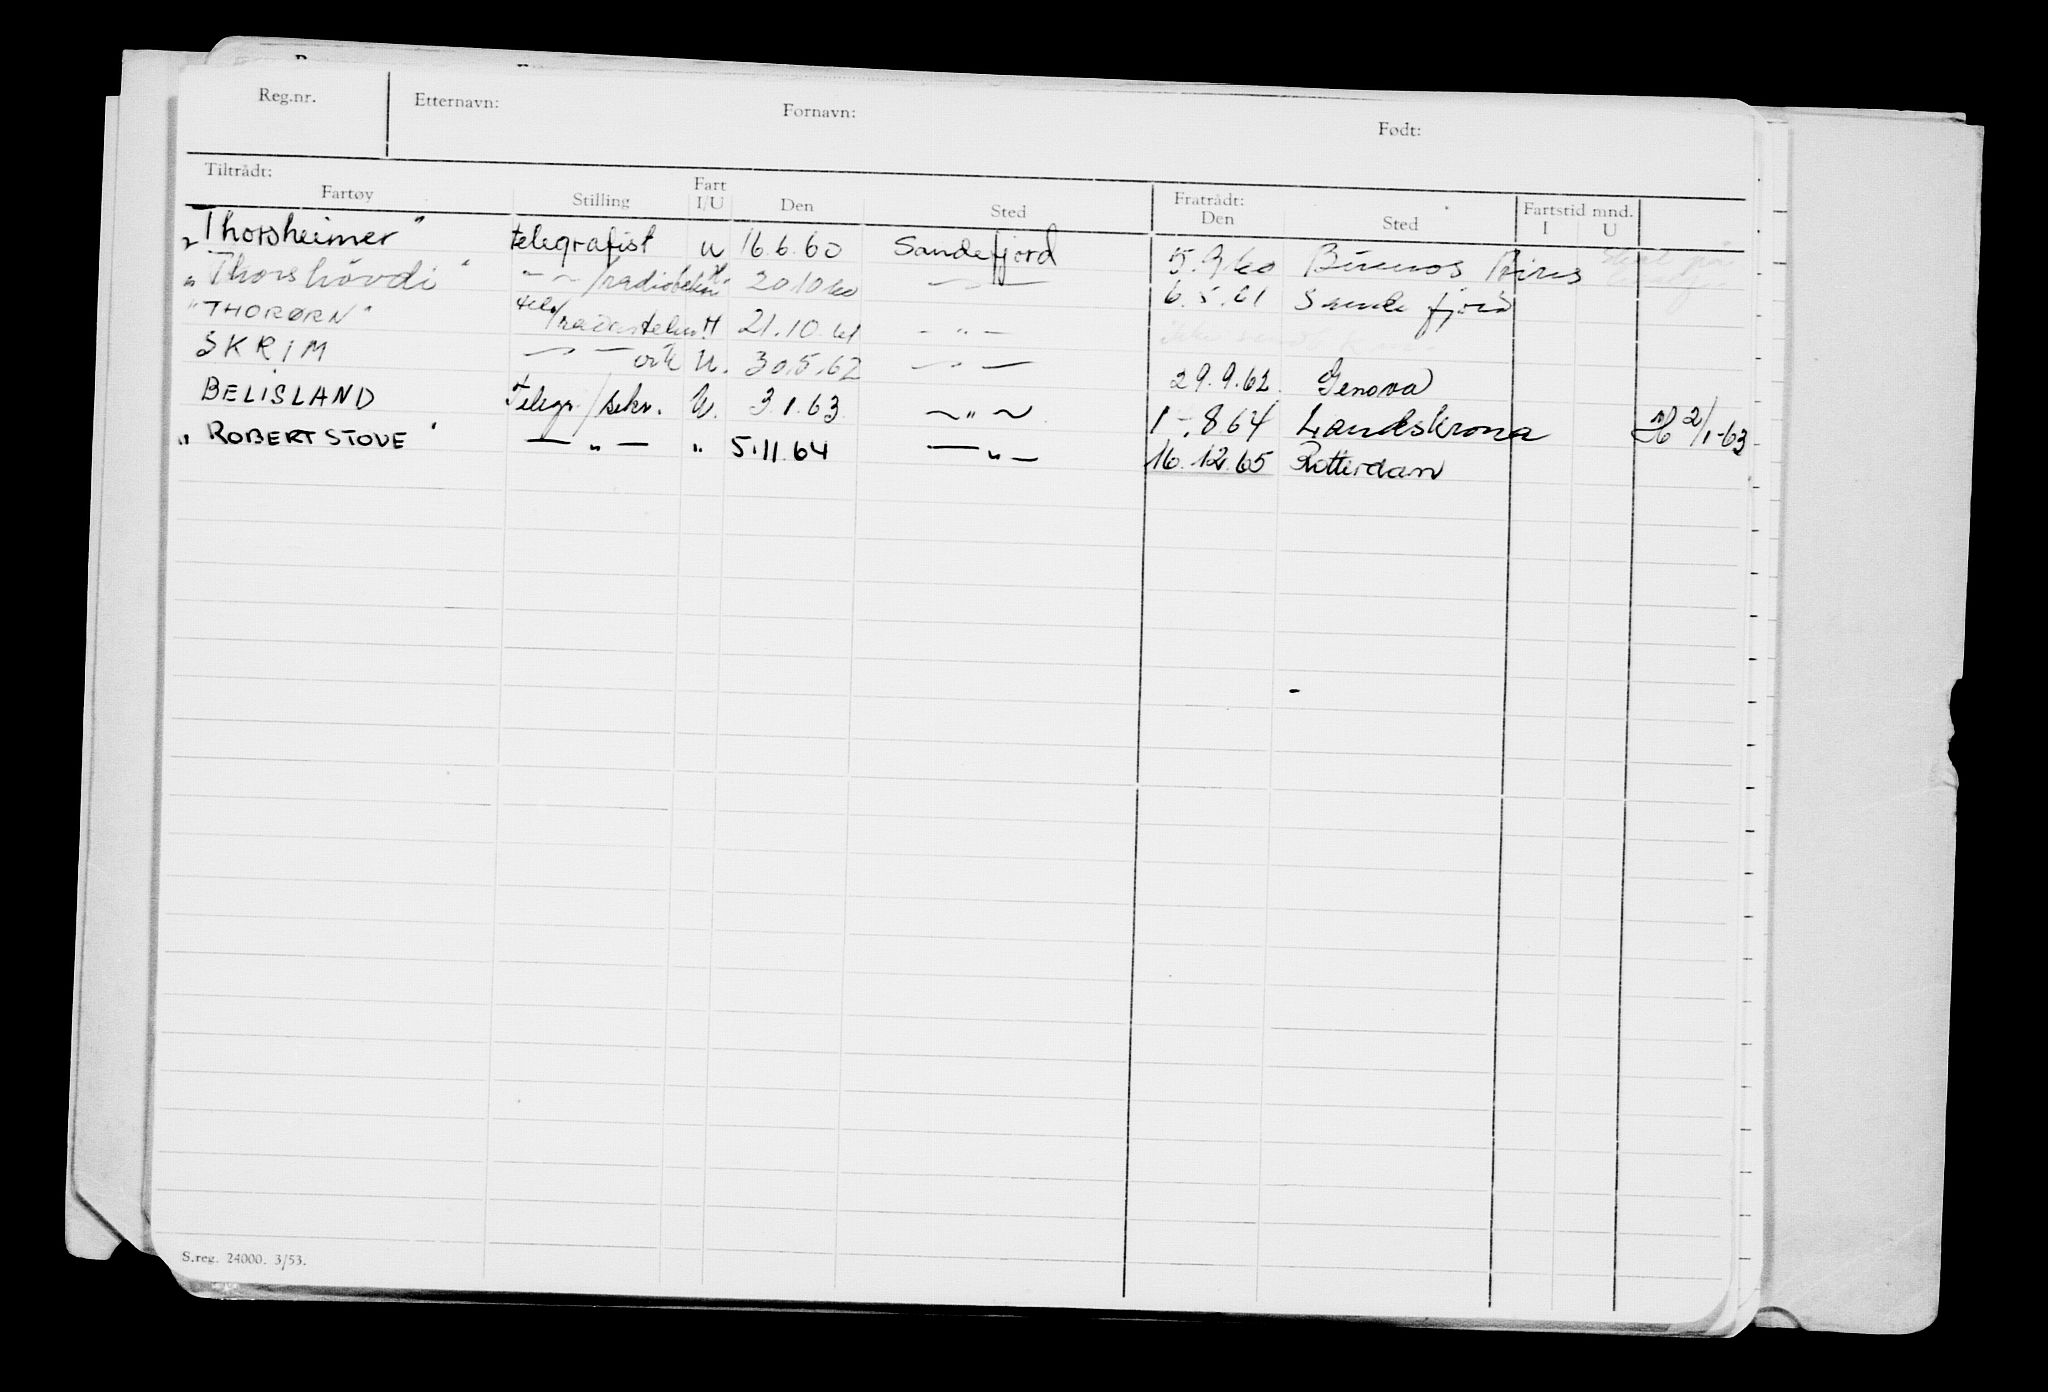 Reg.nr. Etternavn: Fornavn: Født:
Tiltrådt: Fratrådt: Fartstid mnd.
Fartøy Stilling Fart I/U Den Sted Den Sted I U
"Thorsheimer" telegrafist U 16.6.60 Sandefjord 5.9.60 Buenos Aires
"Thorshövdi" — ~ / 20.10.60 — " — 6.5.61 Sandefjord
"THORØRN" tel/ 21.10.61 — " —
SKRIM — " — U. 30.5.62 — " — 29.9.62. Genova
BELISLAND Telegr./sekr. U. 3.1.63 ~ " ~ 1.8.64 Landskrona 2/1-63
"ROBERT STOVE" — " — " 5.11.64 — " — 16.12.65 Rotterdam
S.reg. 24000. 3/53.